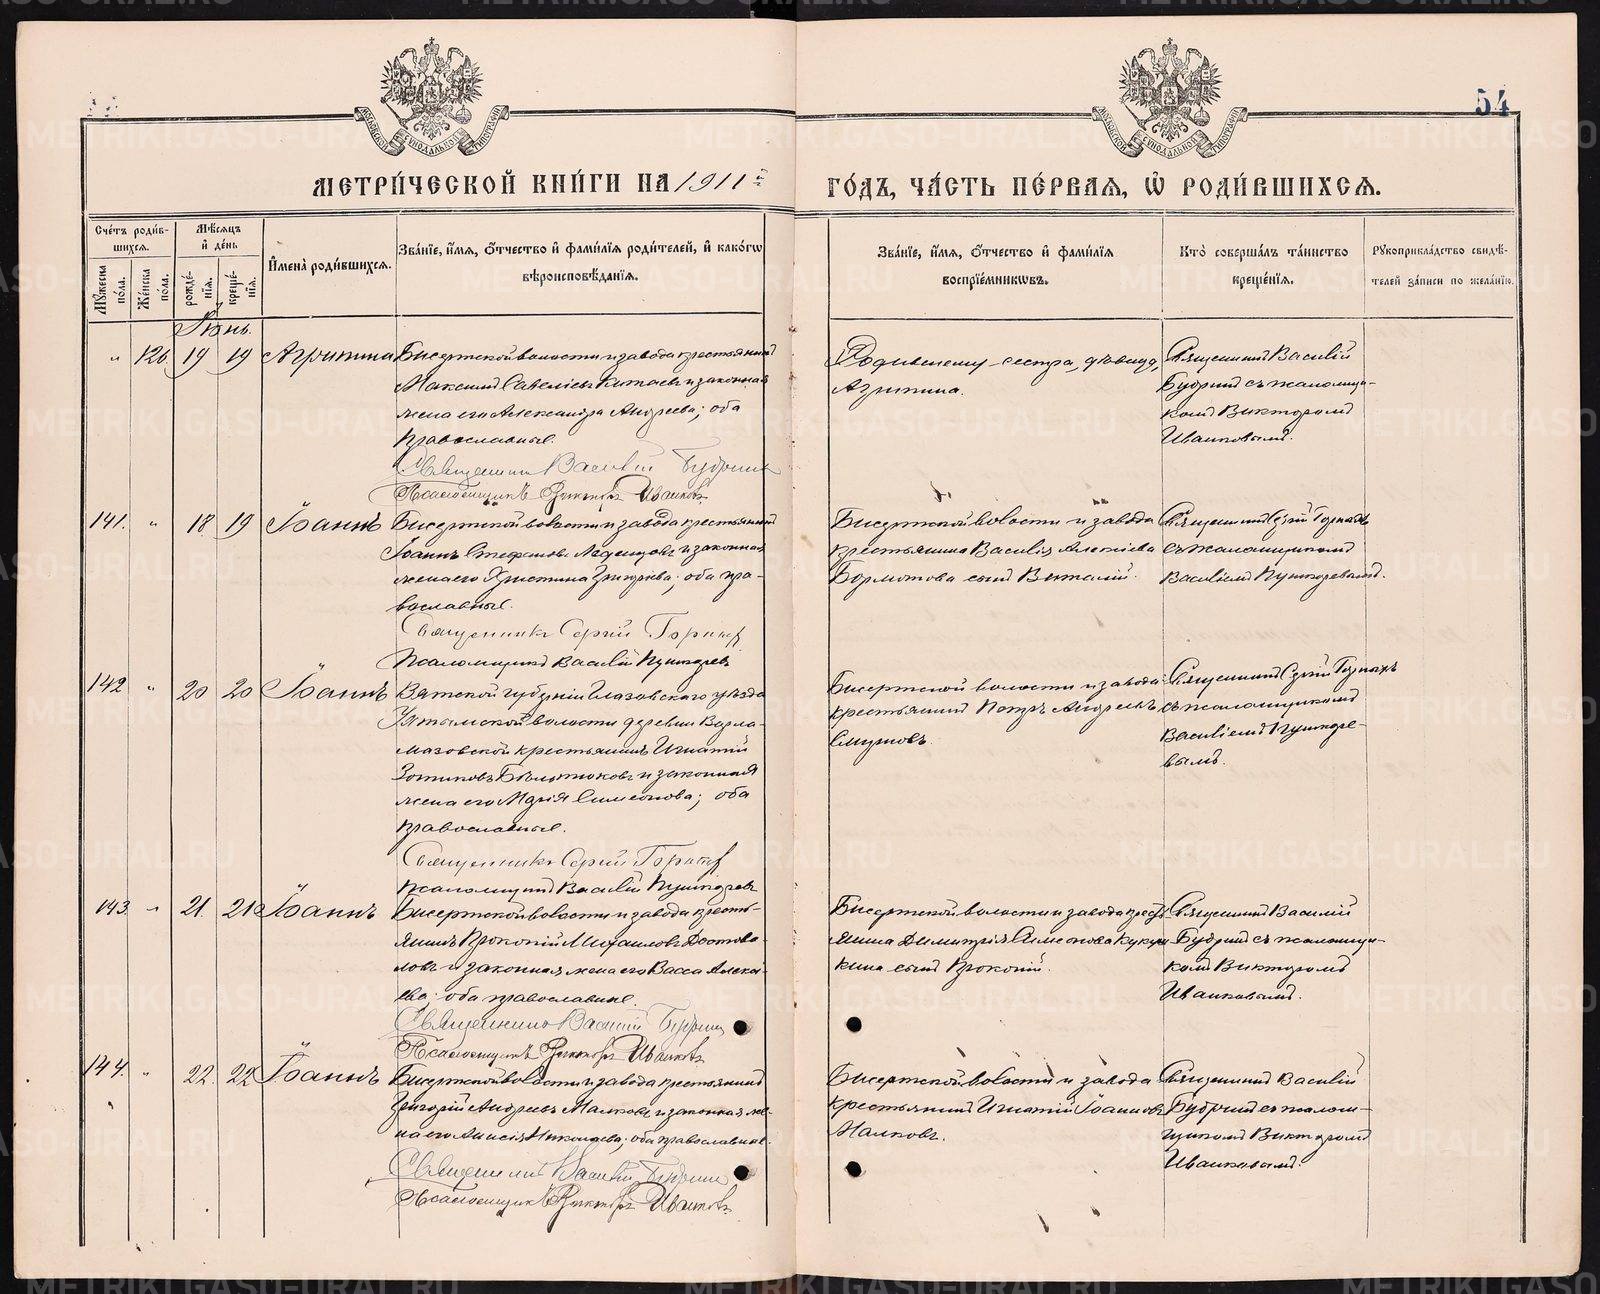 54
МЕТРИ́ЧЕСКОЙ КНИ́ГИ НА 1911й
ГО́ДЪ, ЧА́СТЬ ПЕ́РВАЯ, Ѡ҆ РОДИ́ВШИХСЯ.
Сче́тъ роди́вшихся.
Му́жеска по́ла.
Же́нска по́ла.
Мѣ́сяцъ и҆ де́нь
рожде́нїя.
креще́нїя.
И҆мена̀ роди́вшихся.
Зва́нїе, и҆́мя, ѻ҆́тчество и҆ фами́лїя роди́телей, и҆ како́гѡ
вѣроисповѣ́данїя.
Зва́нїе, и҆́мя, ѻ҆́тчество и҆ фами́лїя
воспрїе́мниковъ.
Кто̀ соверша́лъ та́инство
креще́нїя.
Рꙋкоприкла́дство свидѣ́-
телей за́писи по жела́нїю.
Іюнь.
" 126. 19 19 Агрипина
Бисертской волости и завода крестьянинъ
Максимъ Савеліевъ Китаевъ и законная
жена его Александра Андреева; оба
православные.
Священникъ Василій Будринъ
Псаломщикъ Викторъ Иванковъ
Родившему сестра, дѣвица,
Агрипина.
Священникъ Василій
Будринъ съ псаломщи-
комъ Викторомъ
Иванковымъ.
141. " 18 19 Іоаннъ
Бисертской волости и завода крестьянинъ
Іоаннъ Стефановъ и законная
жена его Христина Григоріева; оба пра-
вославные.
Священникъ Сергій
Псаломщикъ Василій Пушкаревъ
Бисертской волости и завода
крестьянина Василія Алексіева
Бормотова сынъ Виталій.
Священникъ Сергій
съ псаломщикомъ
Василіемъ Пушкаревымъ.
142 " 20 20 Іоаннъ
Вятской губерніи Глазовскаго уѣзда
волости деревни Варла-
мазовской крестьянинъ Игнатій
Зотиковъ и законная
жена его Марія Симеонова; оба
православные.
Священникъ Сергій
Псаломщикъ Василій Пушкаревъ
Бисертской волости и завода
крестьянинъ Петръ Андреевъ
Священникъ Сергій
съ псаломщикомъ
Василіемъ Пушкаре-
вымъ.
143. " 21. 21 Іоаннъ
Бисертской волости и завода кресть-
янинъ Прокопій Михаиловъ Достова-
ловъ и законная жена его Васса Алексі-
ева; оба православные.
Священникъ Василій Будринъ
Псаломщикъ Викторъ Иванковъ
Бисертской волости и завода кресть-
янина Димитрія Симеонова Кукуш-
кина сынъ Прокопій.
Священникъ Василій
Будринъ съ псаломщи-
комъ Викторомъ
Иванковымъ.
144. " 22. 22 Іоаннъ
Бисертской волости и завода крестьянинъ
Григорій Андреевъ Малковъ и законная же-
на его Анисія Николаева; оба православные.
Священникъ Василій Будринъ
Псаломщикъ Викторъ Иванковъ
Бисертской волости и завода
крестьянинъ Игнатій Іоанновъ
Малковъ.
Священникъ Василій
Будринъ съ псалом-
щикомъ Викторомъ
Иванковымъ.
METRIKI.GASO-URAL.RU